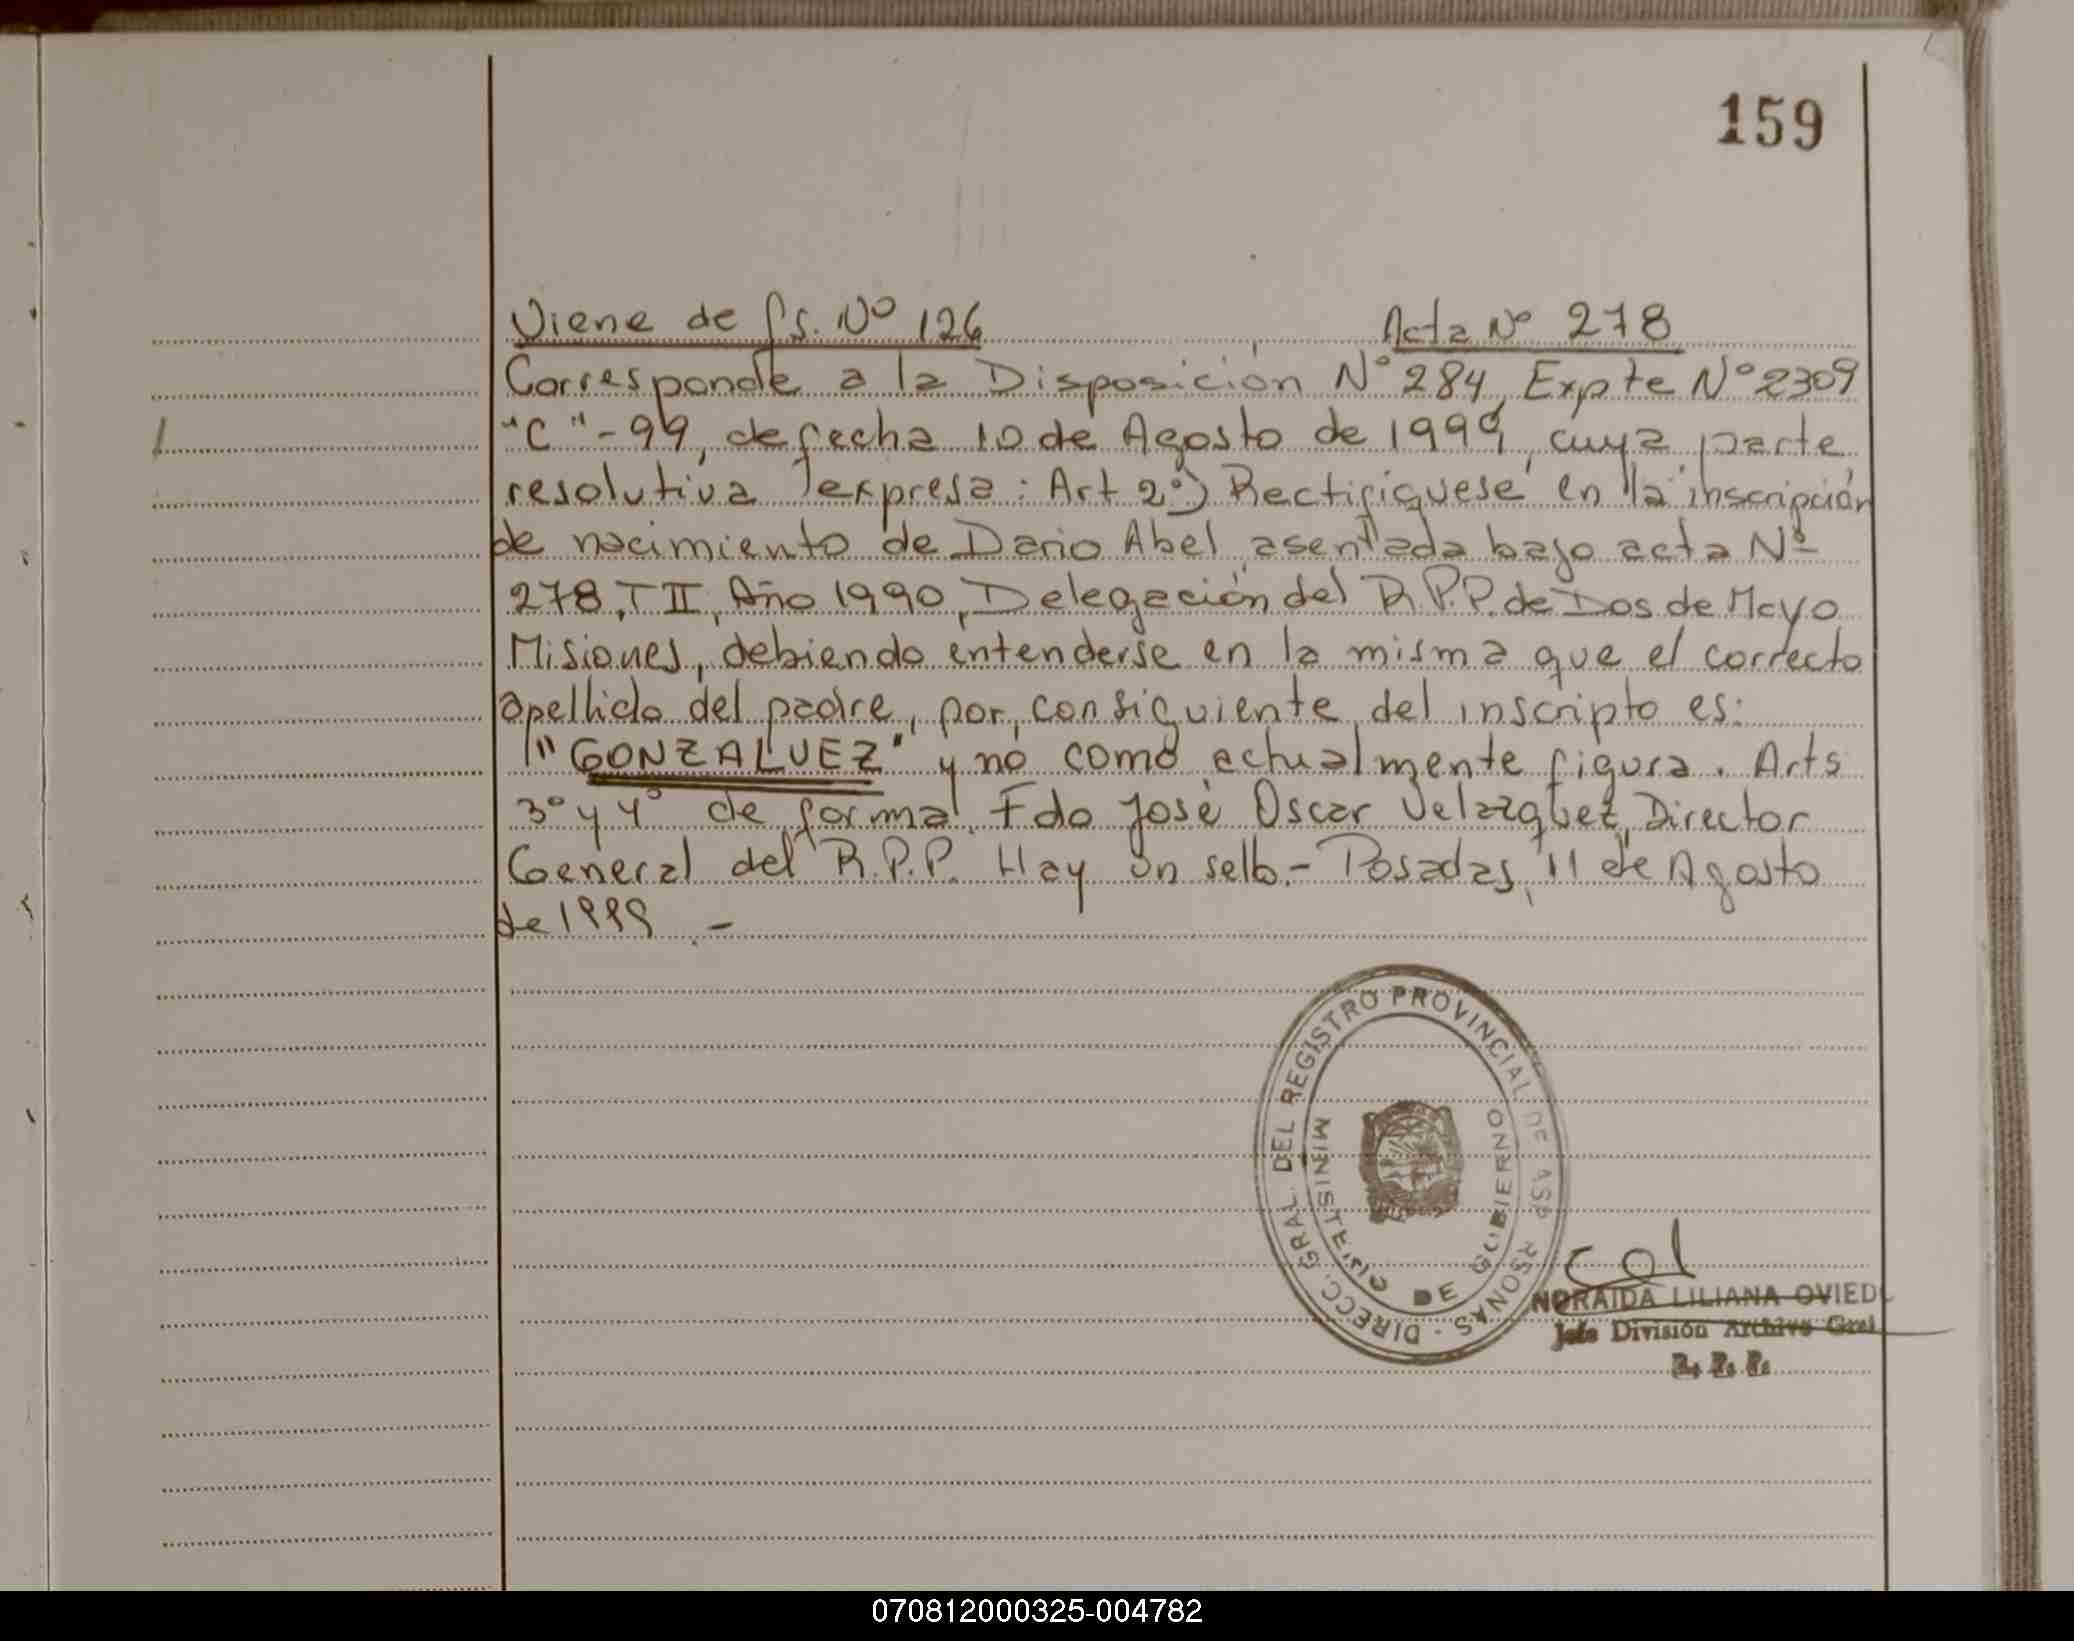 159
Viene de fs. Nº 126 Acta Nº 278
Corresponde a la Disposición Nº 284, Expte Nº 2309
"C"-99, de fecha 10 de Agosto de 1999, cuya parte
resolutiva expresa: Art 2º) Rectifiquese en la inscripción
de nacimiento de Dario Abel, asentada bajo acta Nº
278, T II, Año 1990, Delegación del R.P.P. de Dos de Mayo
Misiones, debiendo entenderse en la misma que el correcto
apellido del padre, por consiguiente del inscripto es:
"GONZALVEZ" y no como actualmente figura. Arts
3º y 4º de forma. Fdo José Oscar Velazquez, Director
General del R.P.P. Hay un sello.- Posadas, 11 de Agosto
de 1999.-
DIRECC. GRAL. DEL REGISTRO PROVINCIAL DE
MINISTERIO DE GOBIERNO
NORAIDA LILIANA OVIED
Jefe División Archivo Gral
R. P. P.
070812000325-004782